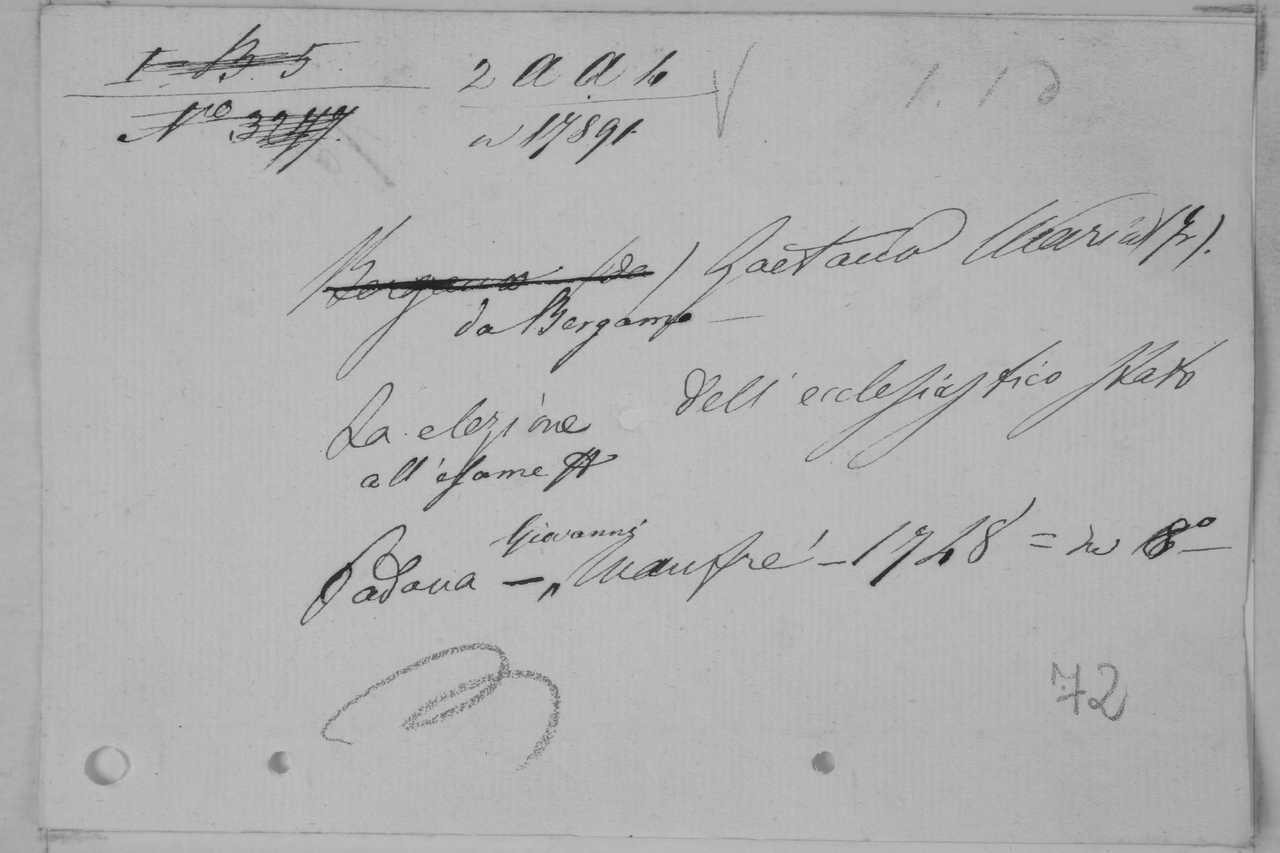 I B 5
2 a a 4
1. 1 d
Nro 3247
n 17891
Bergamo (da) Gaetano Maria (Fr).
da Bergamo
La elezione dell' ecclesiastico Stato
all' esame
Giovanni
Padova - Manfrè - 1748 = in 8º
72